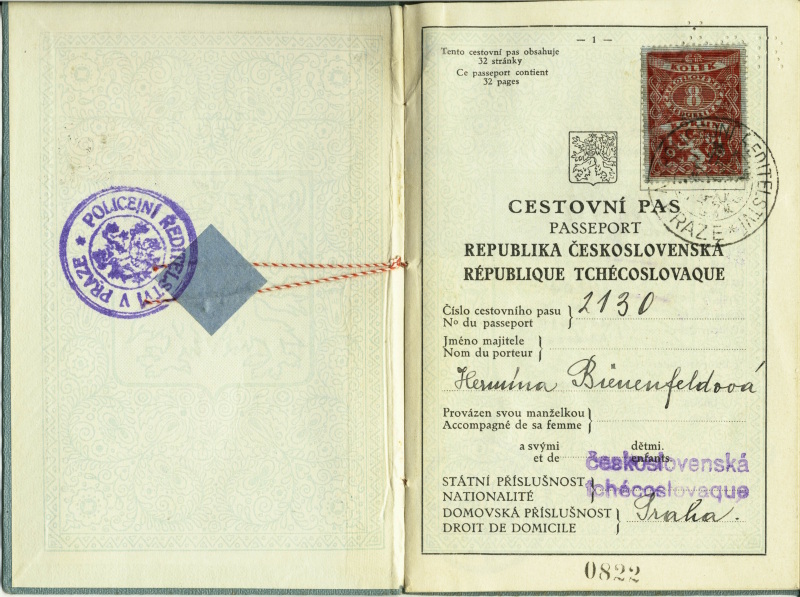 POLICEJNÍ ŘEDITELSTVÍ V PRAZE
— 1 —
Tento cestovní pas obsahuje
32 stránky
Ce passeport contient
32 pages
KOLEK
8
ŘEDITELSTVÍ
PRAZE
CESTOVNÍ PAS
PASSEPORT
REPUBLIKA ČESKOSLOVENSKÁ
RÉPUBLIQUE TCHÉCOSLOVAQUE
Číslo cestovního pasu
No du passeport
2130
Jméno majitele
Nom du porteur
Hermína Bienenfeldová
Provázen svou manželkou
Accompagné de sa femme
a svými dětmi.
et de enfants.
československá
tchécoslovaque
STÁTNÍ PŘÍSLUŠNOST
NATIONALITÉ
DOMOVSKÁ PŘÍSLUŠNOST
DROIT DE DOMICILE
Praha.
0822